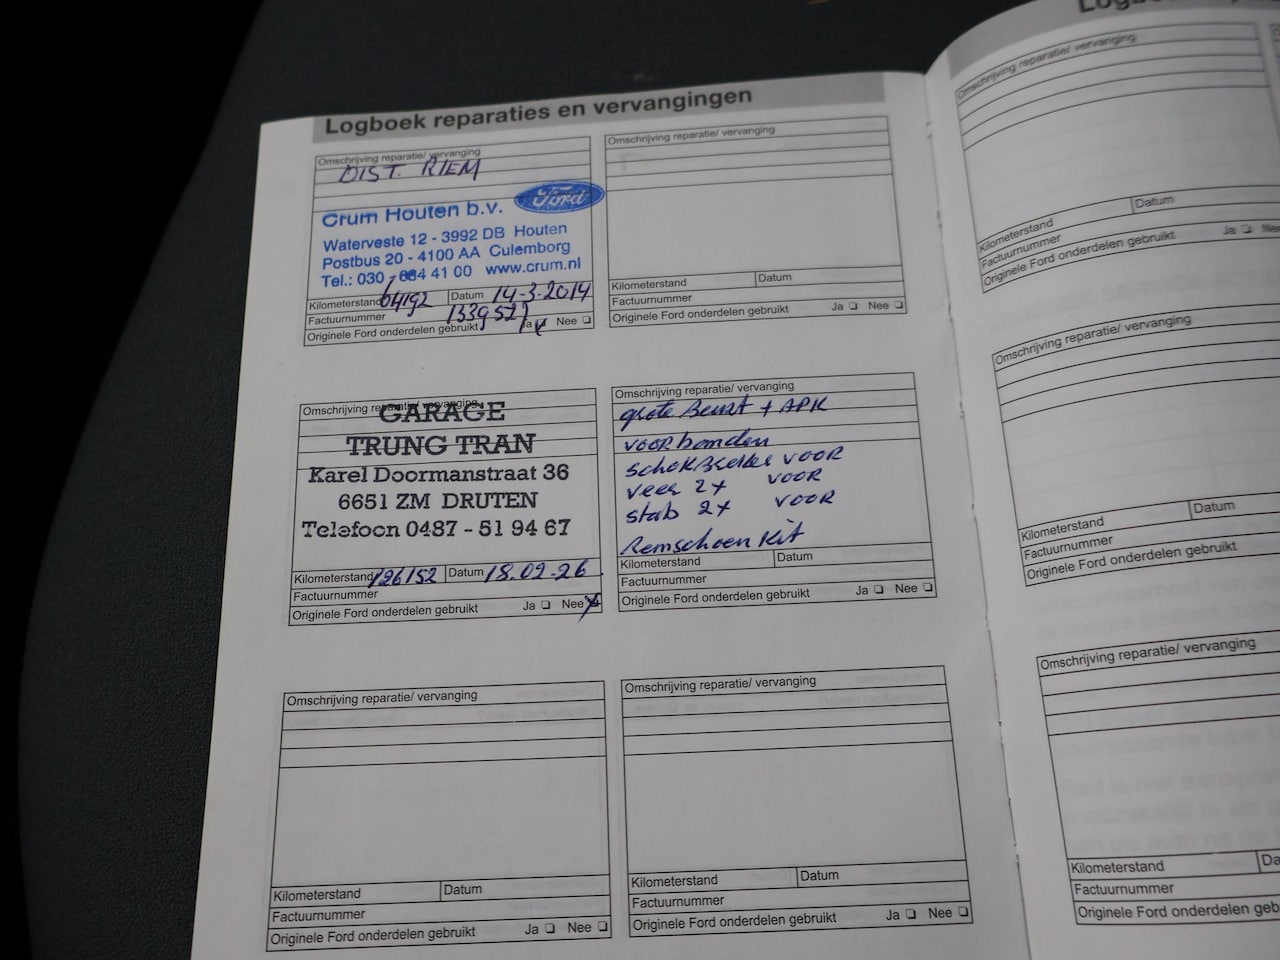 Logboek reparaties en vervangingen
Omschrijving reparatie/ vervanging
DIST. RIEM
Crum Houten b.v.
Ford
Waterveste 12 - 3992 DB Houten
Postbus 20 - 4100 AA Culemborg
Tel.: 030 - 634 41 00 www.crum.nl
Kilometerstand 64192 Datum 14-3-2014
Factuurnummer 1339527
Originele Ford onderdelen gebruikt Ja Nee
Omschrijving reparatie/ vervanging
Kilometerstand Datum
Factuurnummer
Originele Ford onderdelen gebruikt Ja Nee
Omschrijving reparatie/ vervanging
GARAGE
TRUNG TRAN
Karel Doormanstraat 36
6651 ZM DRUTEN
Telefoon 0487 - 51 94 67
Kilometerstand 126152 Datum 18.02-26
Factuurnummer
Originele Ford onderdelen gebruikt Ja Nee
Omschrijving reparatie/ vervanging
grote Beurt + APK
voorbanden
schokbreker voor
veer 2x voor
stab 2x voor
Remschoen Kit
Kilometerstand Datum
Factuurnummer
Originele Ford onderdelen gebruikt Ja Nee
Omschrijving reparatie/ vervanging
Kilometerstand Datum
Factuurnummer
Originele Ford onderdelen gebruikt Ja Nee
Omschrijving reparatie/ vervanging
Kilometerstand Datum
Factuurnummer
Originele Ford onderdelen gebruikt Ja Nee
Omschrijving reparatie/ vervanging
Kilometerstand Datum
Factuurnummer
Originele Ford onderdelen gebruikt Ja
Omschrijving reparatie/ vervanging
Kilometerstand Datum
Factuurnummer
Originele Ford onderdelen gebruikt
Omschrijving reparatie/ vervanging
Kilometerstand
Factuurnummer
Originele Ford onderdelen